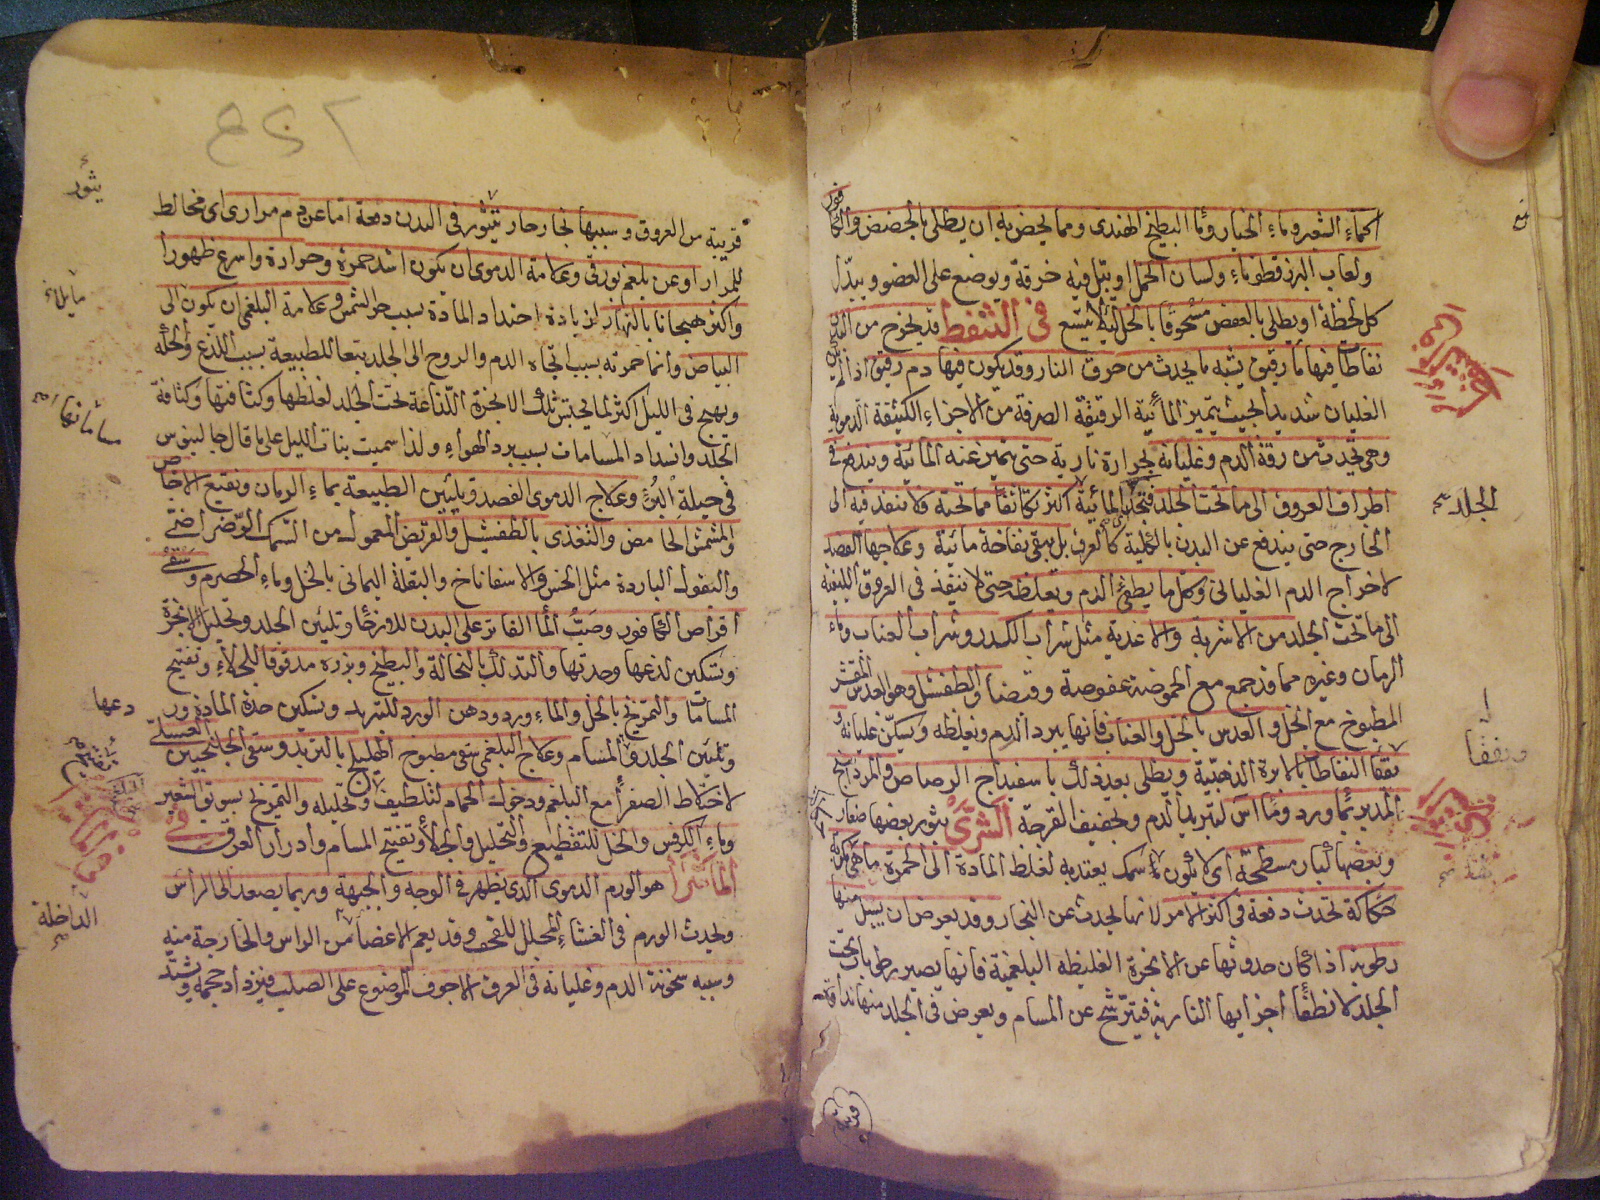 كماء الشعير وماء الخيار وماء البطيخ الهندى ومما يخص به ان يطلى بالحضض والكا
فور
ولعاب البزرقطونا وماء ولسان الحمل او يبتل فيه خرقة ويوضع على العضو ويبدل
كل لحظة او يطلى بالعفص مسحوقا بالخل لئلا يتسع فى التنفط قد يخرج من البدن
نفاطات فيها ماء رقيق يشبه ما يحدث من حرق النار وقد يكون فيها دم رقيق اذا
الغليان شديدا بحيث يتميز المائية الرقيقة الصرفة من الاجزاء الكثيفة الدموية
وهى تحدث من رقة الدم وغليانه بحرارة نارية حتى يتميز عنه المائية ويندفع فى
اطراف العروق الى ما تحت الجلد المائية اكثر تكاثفا مما تحته فلا تنفذ فيه الى
الجلد
الخارج حتى يندفع عن البدن بالكلية كالعرق بل يبقى نفاخة مائية وعلاجها الفصد
لاخراج الدم الغليانى وكل ما يطفئ الدم ويغلظه حتى لا ينفذ فى العروق الليفية
الى ما تحت الجلد من الاشربة والاغذية مثل شراب الكدر وشراب العناب وماء
الرمان وغيره مما قد جمع مع الحموضة عفوصة وقبضا والطفشيل وهو العدس المقشر
المطبوخ مع الخل والعدس بالخل والعناب فانها يبرد الدم ويغلظه ويسكن غليانه و
يفقأ النفاطات بالابرة الذهبية ويطلى بعد ذلك باسفيداج الرصاص والمرداسنج
ويفقأ
المدبر بماورد وماء آس لتبريد الدم وتجفيف القرحة الشرى بثور بعضها صغار
وبعضها كبار مسطحة اى لا يكون لها سمك يعتد به لغلظ المادة الى الحمرة ما هى مكربة
حكاكة تحدث دفعة فى اكثر الامر لانها تحدث عن البخار وقد يعرض ان يسيل منها
رطوبة اذا كان حدوثها عن الابخرة الغليظة البلغمية فانها يصير رطوبات تحت
الجلد لانطفاء اجزايها النارية فيترشح عن المسام ويعرض فى الجلد منها نداوة
قريبة
٢٤٢
قريبة من العروق وسببها بخار حار يتثور فى البدن دفعة اما عن دم مرارى اى مخالط
يثور
للمرار او عن بلغم بورقى وعلامة الدموى ان يكون اشد حمرة وحرارة واسرع ظهورا
واكثر هيجانا بالنهار لزيادة احتداد المادة بسبب حر الشمس وعلامة البلغمى ان يكون الى
البياض وانما حمرته بسبب اتجاه الدم والروح الى الجلد تبعا للطبيعة بسبب اللذع والحكة
ويهيج فى الليل اكثر لما يحتبس تلك الابخرة اللذاعة تحت الجلد لغلظها وكثافتها وكثافة
الجلد وانسداد المسامات بسبب برد الهواء ولذا سميت بنات الليل على ما قال جالينوس
فى حيلة البرء وعلاج الدموى الفصد وتليين الطبيعة بماء الرمان ونقيع الاجاص
والمشمش الحامض والتغذى بالطفشيل والقريص المعمول من السمك الرضراضى
والبقول الباردة مثل الخس والاسفاناخ والبقلة اليمانى بالخل وماء الحصرم وسقى
اقراص الكافور وصب الماء الفاتر على البدن للارخاء وتليين الجلد وتحليل الابخرة
وتسكين لذعها وحدتها والتدلك بالنخالة والبطيخ وبزره مدقوقا للجلاء وتفتيح
المسامات والتمريخ بالخل والماء ورد ودهن الورد للتبريد وتسكين حدة المادة و
وتليين الجلد والمسام وعلاج البلغمى سقى مطبوخ الهليلج بالتربد وسقى الجلنجبين العسلى
لاختلاط الصفراء مع البلغم ودخول الحمام لتلطيف وتحليله والتمريخ بسويق الشعير
وماء الكرفس والخل للتقطيع والتحليل والجلاء وتفتيح المسام وادرار العرق فى
الماشرا هو الورم الدموى الذى يظهر فى الوجه والجبهة وربما يصعد الى الرأس
ويحدث الورم فى الغشاء المجلل للقحف وقد يعم الاعضاء من الراس والخارجة منه
الداخلة
وسببه سخونة الدم وغليانه فى العرق الاجوف الموضوع على الصلب فيزداد حجمه ويشتد